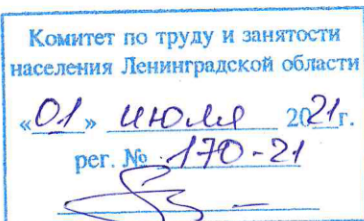 Комитет по труду и занятости
населения Ленинградской области
«01» июля 2021г.
рег. № 170-21